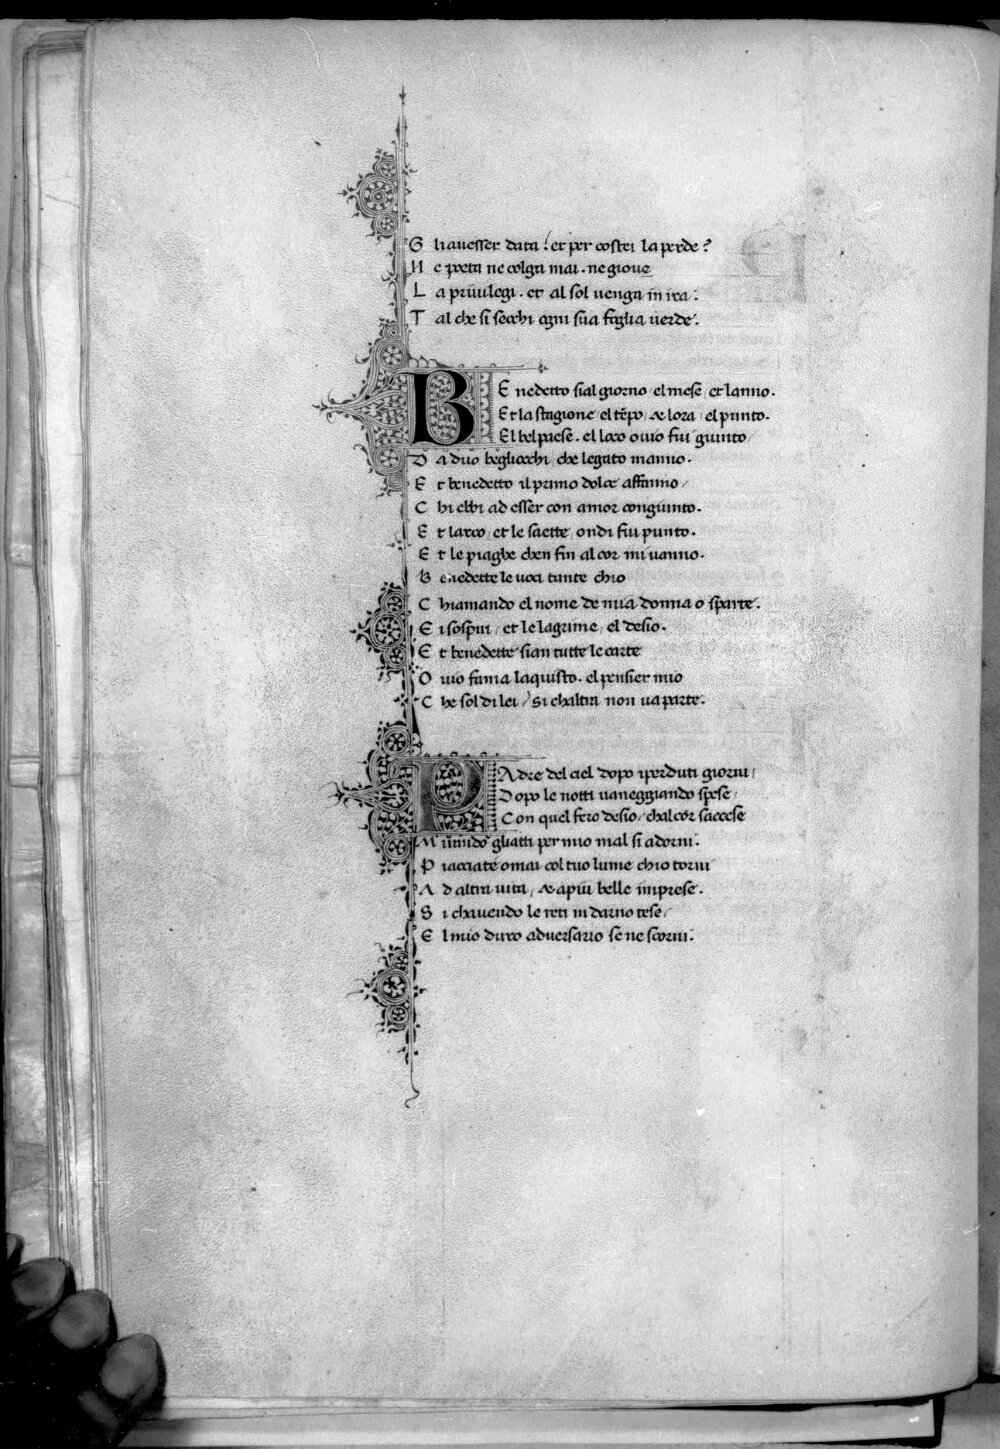 G li auesser data? et per costei la perde?
N e poeta ne colga mai. ne gioue
L a priuilegi. et al sol uenga in ira:
T al che si secchi ogni sua foglia uerde.
BE nedetto sial giorno / el mese / et lanno.
Et la stagione / el tēpo / & lora / el punto.
El bel paese. el loco ouio fui giunto /
D a duo begliocchi / che legato manno.
E t benedetto il primo dolce affanno /
C hi ebbi ad esser con amor congiunto.
E t larco / et le saette / ondi fui punto.
E t le piaghe chen fin al cor mi uanno.
B enedette le uoci tante chio
C hiamando el nome de mia donna o sparte.
E i sospiri / et le lagrime / el desio.
E t benedette sian tutte le carte
O uio fama laquisto. el pensier mio
C he sol di lei / si chaltra non ua parte.
PAdre del ciel dopo i perduti giorni /
Dopo le notti uaneggiando spese /
Con quel fero desio / chal cor saccese
M irando gliatti per mio mal si adorni.
P iacciate omai col tuo lume chio torni
A d altra uita / & a piu belle imprese.
S i chauendo le reti indarno tese /
E l mio duro aduersario se ne scorni.